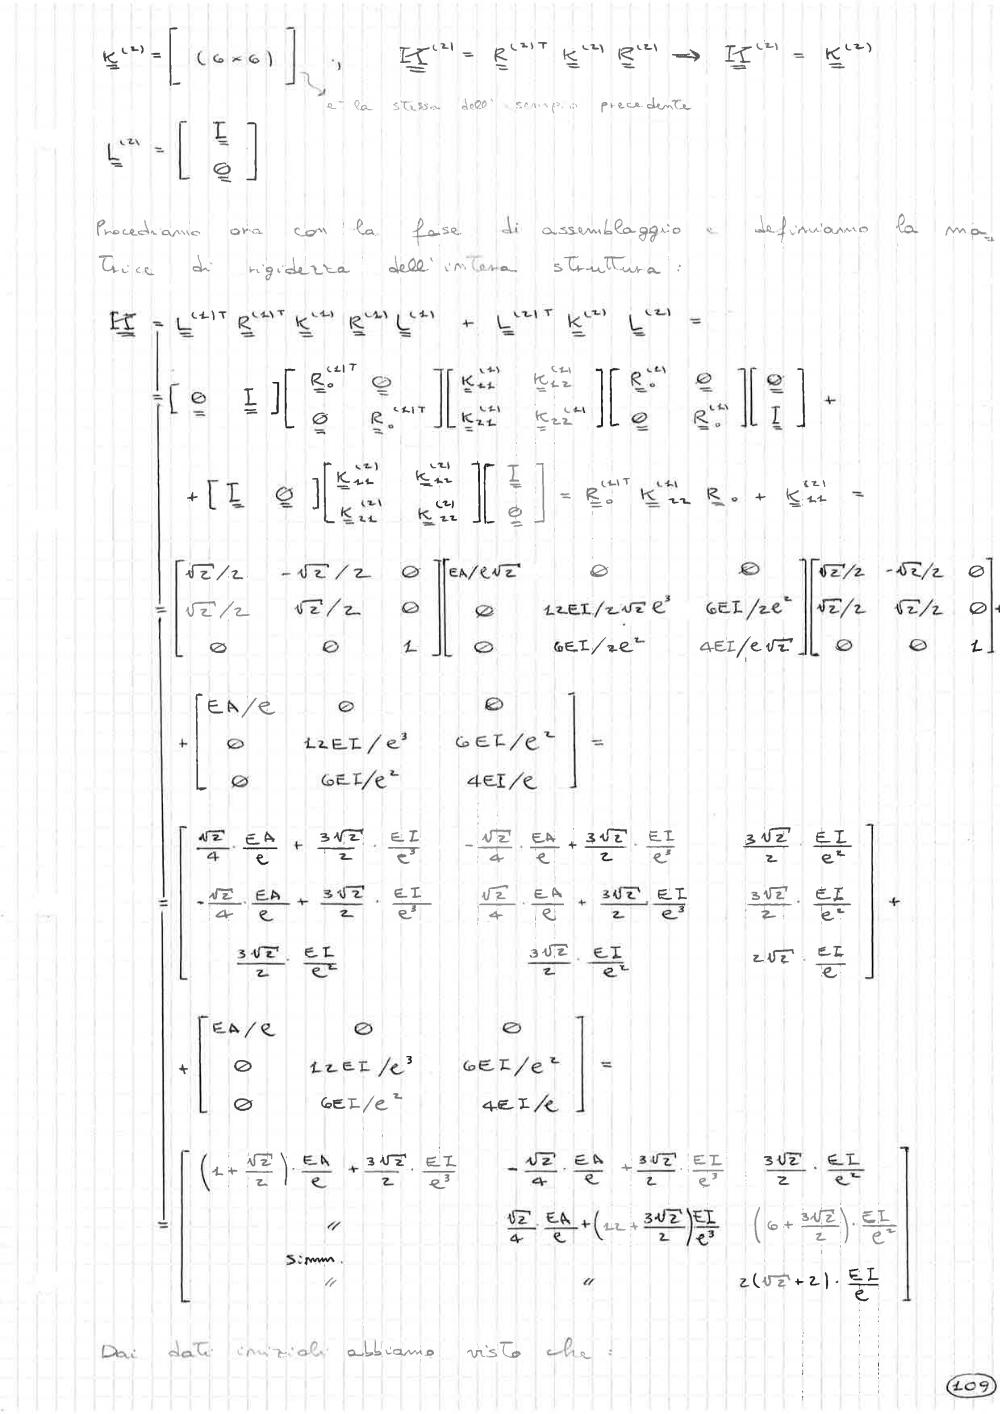 K⁽²⁾ = [ (6×6) ] ; 𝕂⁽²⁾ = R⁽²⁾ᵀ K⁽²⁾ R⁽²⁾ → 𝕂⁽²⁾ = K⁽²⁾
e' la stessa dell'esempio precedente
L⁽²⁾ = [ I ; ∅ ]
Procediamo ora con la fase di assemblaggio e definiamo la ma-
trice di rigidezza dell'intera struttura :
𝕂 = L⁽¹⁾ᵀ R⁽¹⁾ᵀ K⁽¹⁾ R⁽¹⁾ L⁽¹⁾ + L⁽²⁾ᵀ K⁽²⁾ L⁽²⁾ =
= [ ∅ I ] [ R₀⁽¹⁾ᵀ ∅ ; ∅ R₀⁽¹⁾ᵀ ] [ K₁₁⁽¹⁾ K₁₂⁽¹⁾ ; K₂₁⁽¹⁾ K₂₂⁽¹⁾ ] [ R₀⁽¹⁾ ∅ ; ∅ R₀⁽¹⁾ ] [ ∅ ; I ] +
+ [ I ∅ ] [ K₁₁⁽²⁾ K₁₂⁽²⁾ ; K₂₁⁽²⁾ K₂₂⁽²⁾ ] [ I ; ∅ ] = R₀⁽¹⁾ᵀ K₂₂⁽¹⁾ R₀ + K₁₁⁽²⁾ =
= [ √2/2 -√2/2 ∅ ; √2/2 √2/2 ∅ ; ∅ ∅ 1 ] [ EA/ℓ√2 ∅ ∅ ; ∅ 12EI/2√2ℓ³ 6EI/2ℓ² ; ∅ 6EI/2ℓ² 4EI/ℓ√2 ] [ √2/2 -√2/2 ∅ ; √2/2 √2/2 ∅ ; ∅ ∅ 1 ] +
+ [ EA/ℓ ∅ ∅ ; ∅ 12EI/ℓ³ 6EI/ℓ² ; ∅ 6EI/ℓ² 4EI/ℓ ] =
= [ √2/4 · EA/ℓ + 3√2/2 · EI/ℓ³ -√2/4 · EA/ℓ + 3√2/2 · EI/ℓ³ 3√2/2 · EI/ℓ²
-√2/4 · EA/ℓ + 3√2/2 · EI/ℓ³ √2/4 · EA/ℓ + 3√2/2 EI/ℓ³ 3√2/2 · EI/ℓ²
3√2/2 · EI/ℓ² 3√2/2 · EI/ℓ² 2√2 · EI/ℓ ] +
+ [ EA/ℓ ∅ ∅ ; ∅ 12EI/ℓ³ 6EI/ℓ² ; ∅ 6EI/ℓ² 4EI/ℓ ] =
= [ (1 + √2/2) · EA/ℓ + 3√2/2 · EI/ℓ³ -√2/4 · EA/ℓ + 3√2/2 · EI/ℓ³ 3√2/2 · EI/ℓ²
〃 √2/4 · EA/ℓ + (12 + 3√2/2) EI/ℓ³ (6 + 3√2/2) · EI/ℓ²
simm.
〃 〃 2(√2+2) · EI/ℓ ]
Dai dati iniziali abbiamo visto che :
109